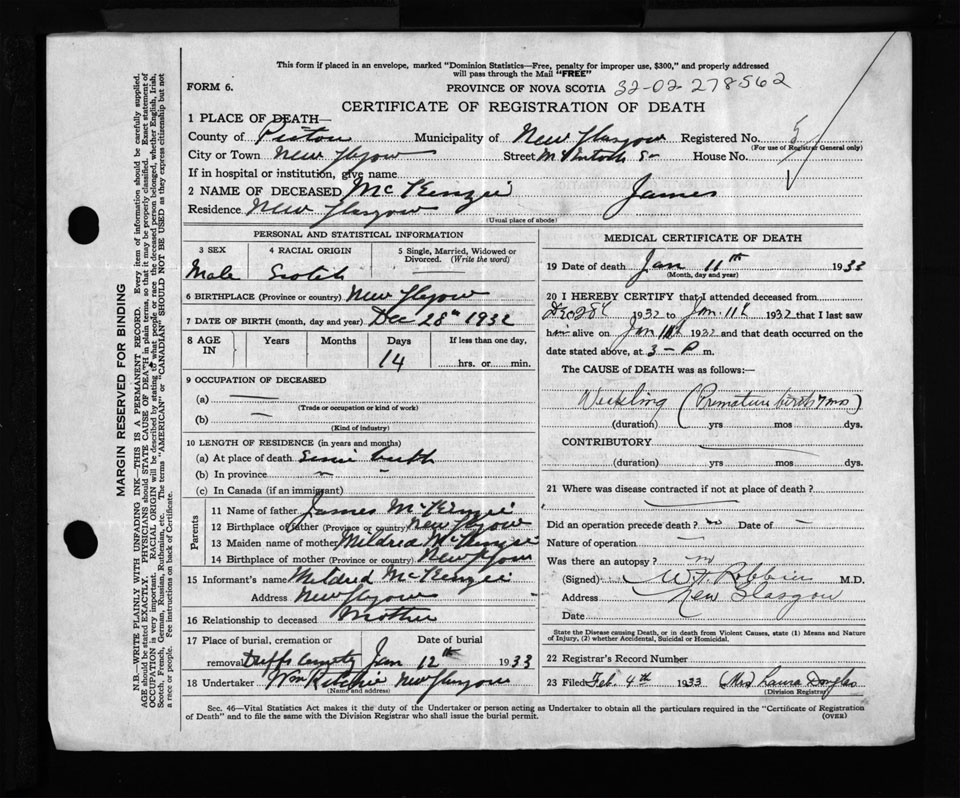 This form if placed in an envelope, marked "Dominion Statistics—Free, penalty for improper use, $300," and properly addressed
will pass through the Mail "FREE"
FORM 6.
PROVINCE OF NOVA SCOTIA 32-02-278562
CERTIFICATE OF REGISTRATION OF DEATH
1 PLACE OF DEATH—
County of Pictou Municipality of New Glasgow Registered No. 5
(For use of Registrar General only)
City or Town New Glasgow Street House No.
If in hospital or institution, give name
2 NAME OF DECEASED McKenzie James
Residence New Glasgow
(Usual place of abode)
PERSONAL AND STATISTICAL INFORMATION
3 SEX 4 RACIAL ORIGIN 5 Single, Married, Widowed or
Divorced. (Write the word)
Male Scotch —
6 BIRTHPLACE (Province or country) New Glasgow
7 DATE OF BIRTH (month, day and year) Dec 28th 1932
8 AGE IN Years Months Days If less than one day,
14 hrs. or min.
9 OCCUPATION OF DECEASED
(a) —
(Trade or occupation or kind of work)
(b) —
(Kind of industry)
10 LENGTH OF RESIDENCE (in years and months)
(a) At place of death Since birth
(b) In province
(c) In Canada (if an immigrant)
Parents
11 Name of father James McKenzie
12 Birthplace of father (Province or country) New Glasgow
13 Maiden name of mother Mildred McKenzie
14 Birthplace of mother (Province or country) New Glasgow
15 Informant's name Mildred McKenzie
Address New Glasgow
16 Relationship to deceased Mother
17 Place of burial, cremation or Date of burial
removal Duffs Cemetery Jan 12th 1933
18 Undertaker Wm Ritchie New Glasgow
(Name and address)
MEDICAL CERTIFICATE OF DEATH
19 Date of death Jan 11th 1933
(Month, day and year)
20 I HEREBY CERTIFY that I attended deceased from
Dec 28 1932 to Jan. 11th 1932 that I last saw
him alive on Jan 1932 and that death occurred on the
date stated above, at 3 - P m.
The CAUSE of DEATH was as follows:—
Weakling (Premature birth 7 mos)
(duration) yrs mos dys.
CONTRIBUTORY
(duration) yrs. mos. dys.
21 Where was disease contracted if not at place of death?
Did an operation precede death? no Date of —
Nature of operation —
Was there an autopsy? no
(Signed) W.F. Robbins M.D.
Address New Glasgow
Date
State the Disease causing Death, or in death from Violent Causes, state (1) Means and Nature
of Injury, (2) whether Accidental, Suicidal or Homicidal.
22 Registrar's Record Number
23 Filed Feb 4th 1933 (Mrs) Laura Douglas
(Division Registrar)
Sec. 46—Vital Statistics Act makes it the duty of the Undertaker or person acting as Undertaker to obtain all the particulars required in the "Certificate of Registration
of Death" and to file the same with the Division Registrar who shall issue the burial permit. (OVER)
MARGIN RESERVED FOR BINDING
N.B.—WRITE PLAINLY WITH UNFADING INK—THIS IS A PERMANENT RECORD. Every item of information should be carefully supplied.
AGE should be stated EXACTLY. PHYSICIANS should STATE CAUSE OF DEATH in plain terms, so that it may be properly classified. Exact statement of
OCCUPATION is very important. RACIAL ORIGIN will be described by stating to what people or race the deceased person belonged, whether English, Irish,
Scotch, French, German, Russian, Ruthenian, etc. The terms "AMERICAN" or "CANADIAN" SHOULD NOT BE USED as they express citizenship but not
a race or people. Fee instructions on back of Certificate.